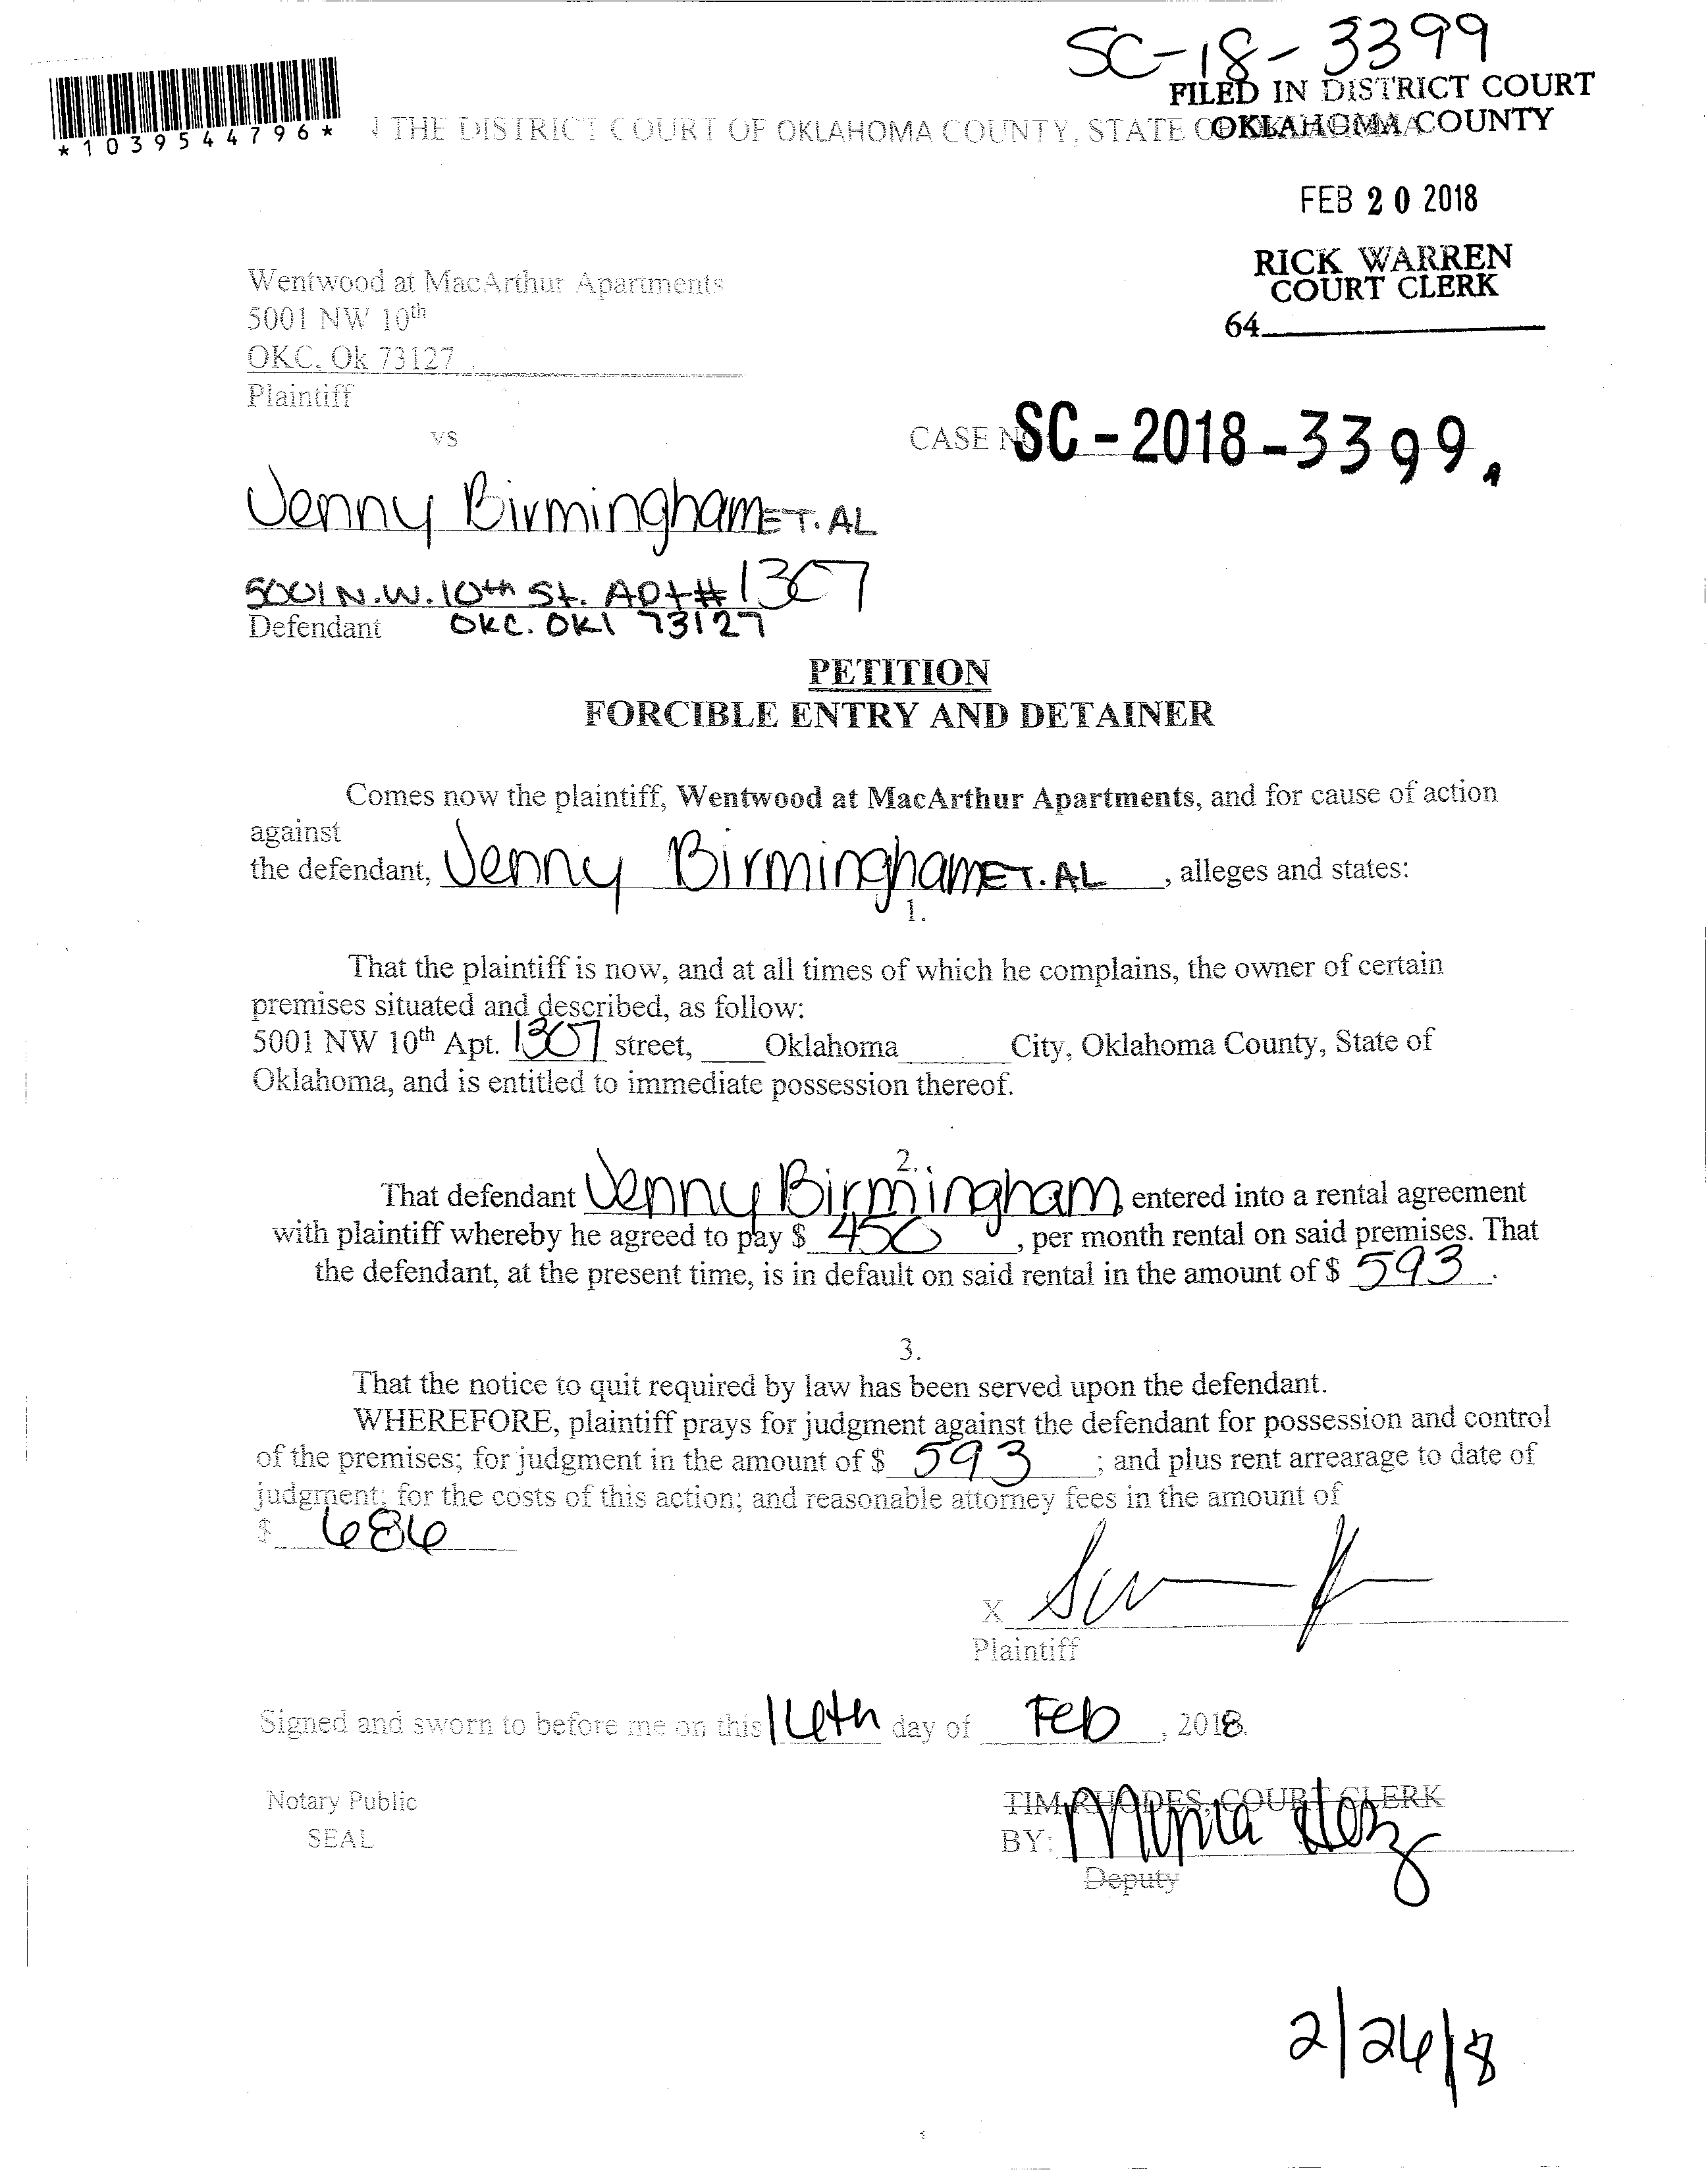 SC-18-3399
FILED IN DISTRICT COURT
OKLAHOMA COUNTY
*1039544796*
THE DISTRICT COURT OF OKLAHOMA COUNTY, STATE
FEB 20 2018
RICK WARREN
COURT CLERK
64
Wentwood at MacArthur Apartments
5001 NW 10th
OKC, Ok 73127
Plaintiff
vs
CASE NO SC-2018-3399
Jenny Birmingham ET. AL
5001 N.W. 10th St. Apt# 1307
Defendant OKC. OKl 73127
PETITION
FORCIBLE ENTRY AND DETAINER
Comes now the plaintiff, Wentwood at MacArthur Apartments, and for cause of action
against
the defendant, Jenny Birmingham ET. AL , alleges and states:
1.
That the plaintiff is now, and at all times of which he complains, the owner of certain
premises situated and described, as follow:
5001 NW 10th Apt. 1307 street, Oklahoma City, Oklahoma County, State of
Oklahoma, and is entitled to immediate possession thereof.
2.
That defendant Jenny Birmingham, entered into a rental agreement
with plaintiff whereby he agreed to pay $ 450 , per month rental on said premises. That
the defendant, at the present time, is in default on said rental in the amount of $ 593 .
3.
That the notice to quit required by law has been served upon the defendant.
WHEREFORE, plaintiff prays for judgment against the defendant for possession and control
of the premises; for judgment in the amount of $ 593 ; and plus rent arrearage to date of
judgment; for the costs of this action; and reasonable attorney fees in the amount of
$ 686
X
Plaintiff
Signed and sworn to before me on this 16th day of Feb , 2018.
Notary Public
SEAL
TIM RHODES, COURT CLERK
BY:
Deputy
2/26/8